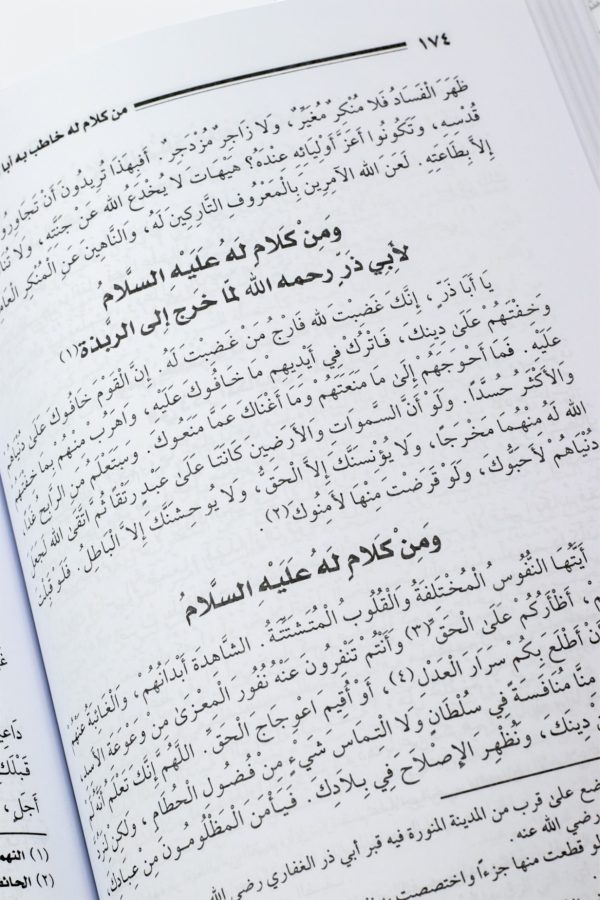 ١٧٤
من كلام له خاطب به أبا
ظَهَرَ الْفَسَادُ فَلَا مُنْكِرٌ مُغَيِّرٌ، وَلَا زَاجِرٌ مُزْدَجِرٌ. أَفَبِهَذَا تُرِيدُونَ أَنْ تُجَاوِرُوا
قُدْسِهِ، وَتَكُونُوا أَعَزَّ أَوْلِيَائِهِ عِنْدَهُ؟ هَيْهَاتَ لَا يُخْدَعُ اللهُ عَنْ جَنَّتِهِ، وَلَا
إِلَّا بِطَاعَتِهِ. لَعَنَ اللهُ الْآمِرِينَ بِالْمَعْرُوفِ التَّارِكِينَ لَهُ، وَالنَّاهِينَ عَنِ الْمُنْكَرِ
وَمِنْ كَلَامٍ لَهُ عَلَيْهِ السَّلَامُ
لأَبِي ذَرٍّ رحمه الله لمَّا خَرَجَ إلى الرَّبَذَةِ (١)
يَا أَبَا ذَرٍّ، إِنَّكَ غَضِبْتَ لِلهِ فَارْجُ مَنْ غَضِبْتَ لَهُ. إِنَّ الْقَوْمَ خَافُوكَ عَلَى دُنْيَاهُمْ
وَخِفْتَهُمْ عَلَى دِينِكَ، فَاتْرُكْ فِي أَيْدِيهِمْ مَا خَافُوكَ عَلَيْهِ، وَاهْرُبْ مِنْهُمْ بِمَا خِفْتَهُمْ
عَلَيْهِ. فَمَا أَحْوَجَهُمْ إِلَى مَا مَنَعْتَهُمْ وَمَا أَغْنَاكَ عَمَّا مَنَعُوكَ. وَسَتَعْلَمُ مَنِ الرَّابِحُ غَدًا،
وَالْأَكْثَرُ حُسَّدًا. وَلَوْ أَنَّ السَّمَوَاتِ وَالْأَرَضِينَ كَانَتَا عَلَى عَبْدٍ رَتْقًا ثُمَّ اتَّقَى اللهَ لَجَعَلَ
اللهُ لَهُ مِنْهُمَا مَخْرَجًا، وَلَا يُؤْنِسَنَّكَ إِلَّا الْحَقُّ، وَلَا يُوحِشَنَّكَ إِلَّا الْبَاطِلُ. فَلَوْ قَبِلْتَ
دُنْيَاهُمْ لَأَحَبُّوكَ، وَلَوْ قَرَضْتَ مِنْهَا لَأَمِنُوكَ (٢).
وَمِنْ كَلَامٍ لَهُ عَلَيْهِ السَّلَامُ
أَيَّتُهَا النُّفُوسُ الْمُخْتَلِفَةُ وَالْقُلُوبُ الْمُتَشَتِّتَةُ. الشَّاهِدَةُ أَبْدَانُهُمْ، وَالْغَائِبَةُ عَنْهُمْ
أَظْأَرُكُمْ عَلَى الْحَقِّ (٣) وَأَنْتُمْ تَنْفِرُونَ عَنْهُ نُفُورَ الْمِعْزَى مِنْ وَعْوَعَةِ الْأَسَدِ،
أَنْ أَطْلَعَ بِكُمْ سَرَارَ الْعَدْلِ (٤)، أَوْ أُقِيمَ اعْوِجَاجَ الْحَقِّ. اللَّهُمَّ إِنَّكَ تَعْلَمُ أَنَّهُ لَمْ
مِنَّا مُنَافَسَةً فِي سُلْطَانٍ وَلَا الْتِمَاسَ شَيْءٍ مِنْ فُضُولِ الْحُطَامِ، وَلَكِنْ لِنَرُدَّ
دِينِكَ، وَنُظْهِرَ الْإِصْلَاحَ فِي بِلَادِكَ. فَيَأْمَنَ الْمَظْلُومُونَ مِنْ عِبَادِكَ،
ضع على قرب من المدينة المنورة فيه قبر أبي ذر الغفاري رضي الله
رضي الله عنه.
لو قطعت منها جزءاً واختصصت
دَاعِي
قَبْلَكَ
أَجَلٍ،
(١) النهم
(٢) الحائط